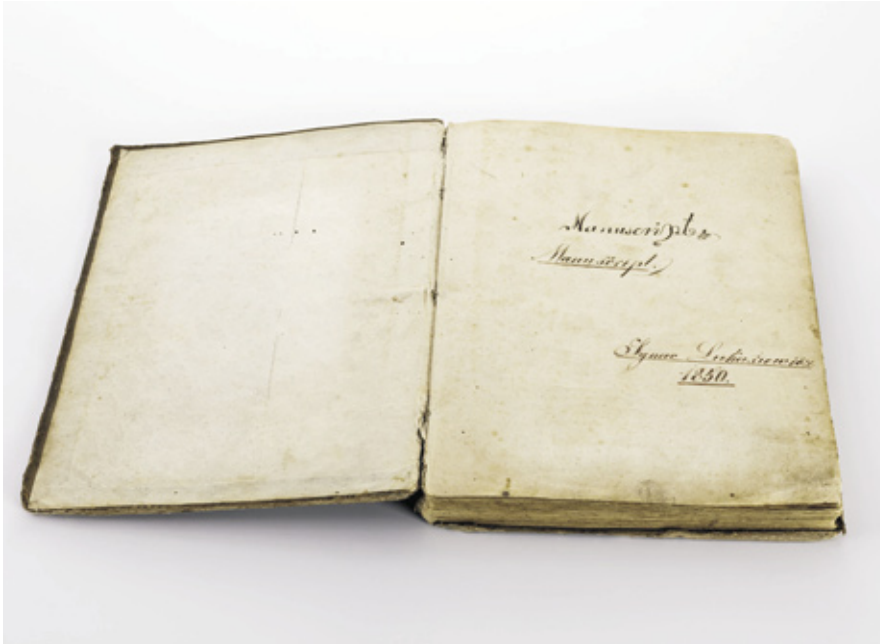 Manuscript
Manuscript.
Ignac Łukasiewicz
1850.